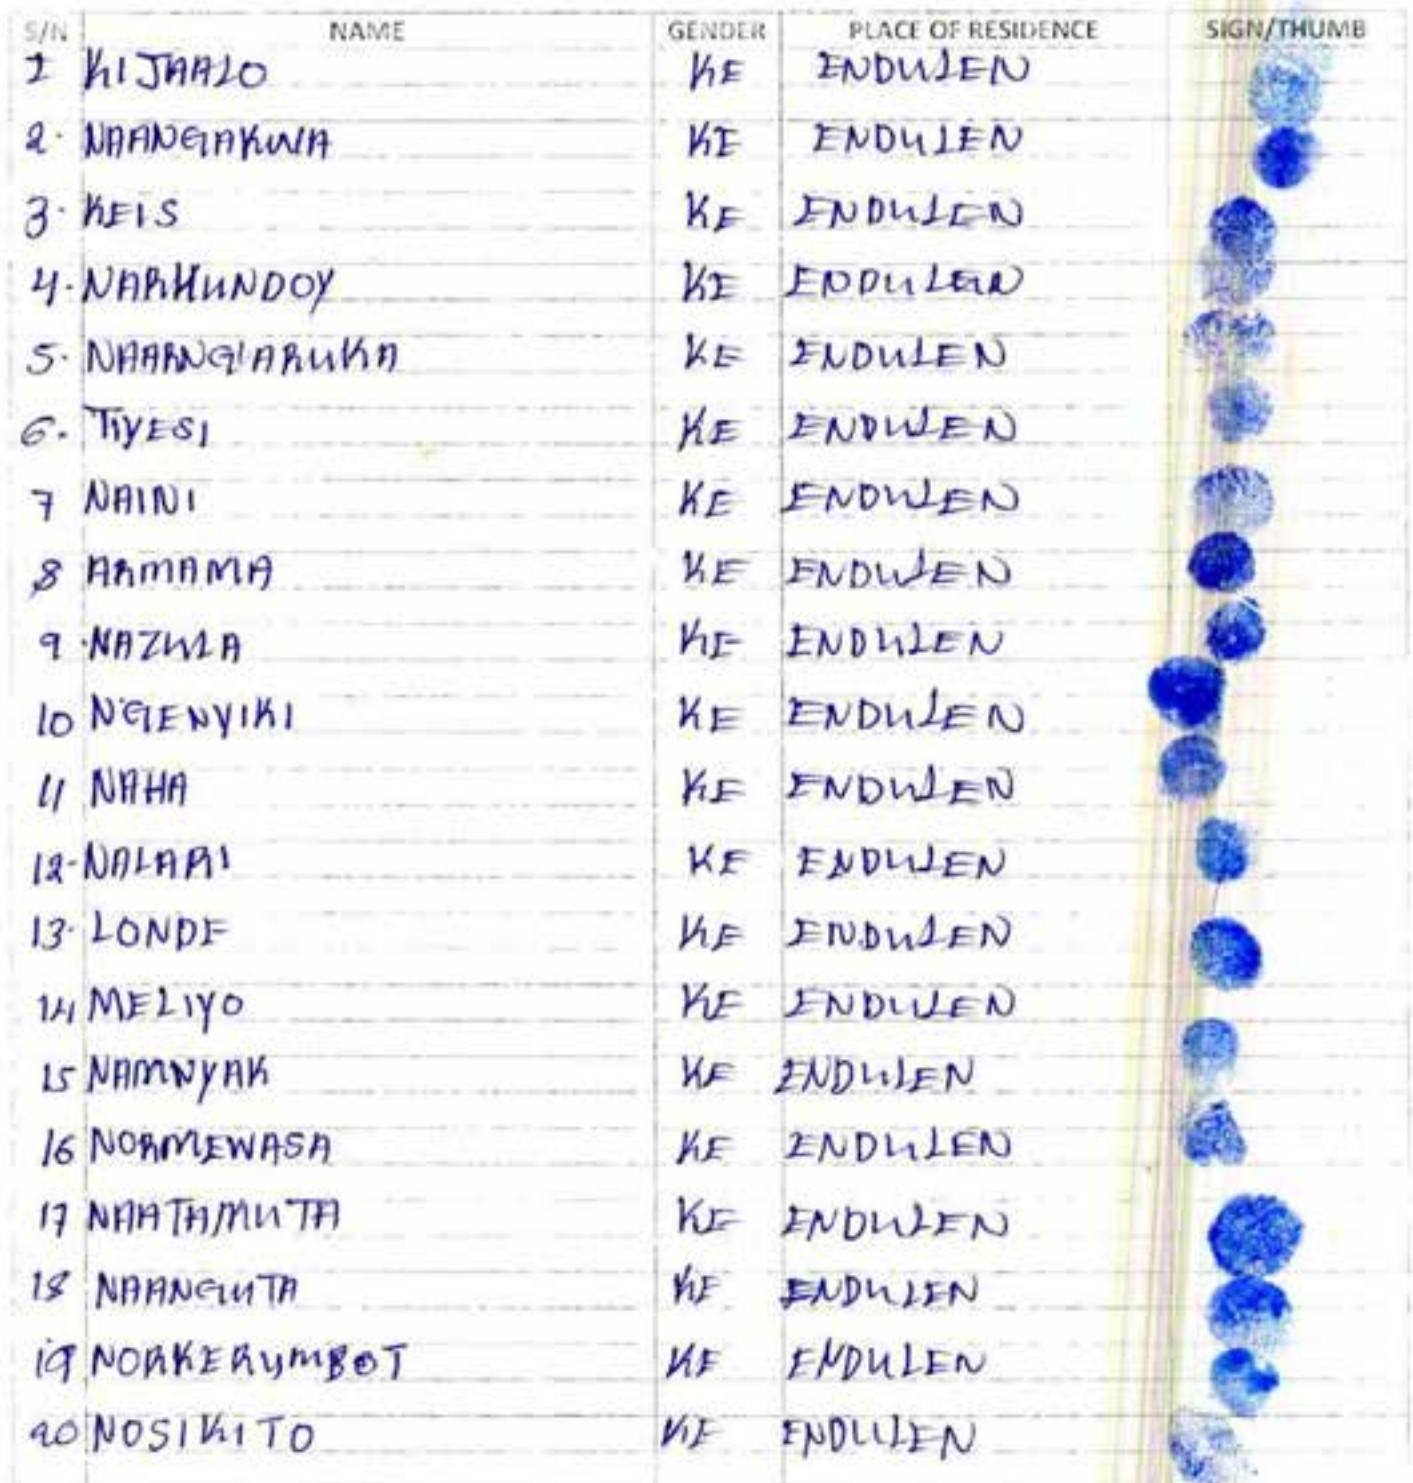 S/N NAME GENDER PLACE OF RESIDENCE SIGN/THUMB
1 KIJAALO KE ENDULEN
2. NAANGAKWA KE ENDULEN
3. KEIS KE ENDULEN
4. NARKUNDOY KE ENDULEN
5. NAARNGARUKA KE ENDULEN
6. TIYESI KE ENDULEN
7 NAINI KE ENDULEN
8 ARMAMA KE ENDULEN
9 NAZULA KE ENDULEN
10 NGENYIKI KE ENDULEN
11 NAHA KE ENDULEN
12. NALARI KE ENDULEN
13. LONDE KE ENDULEN
14 MELIYO KE ENDULEN
15 NAMNYAK KE ENDULEN
16 NORMEWASA KE ENDULEN
17 NAATAMUTA KE ENDULEN
18 NAANGUTA KE ENDULEN
19 NORKERUMBOT KE ENDULEN
20 NOSIKITO KE ENDULEN